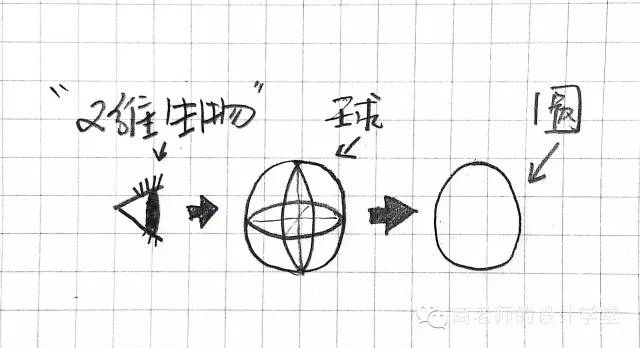 “2维生物” 球 圆
商老师的设计学堂